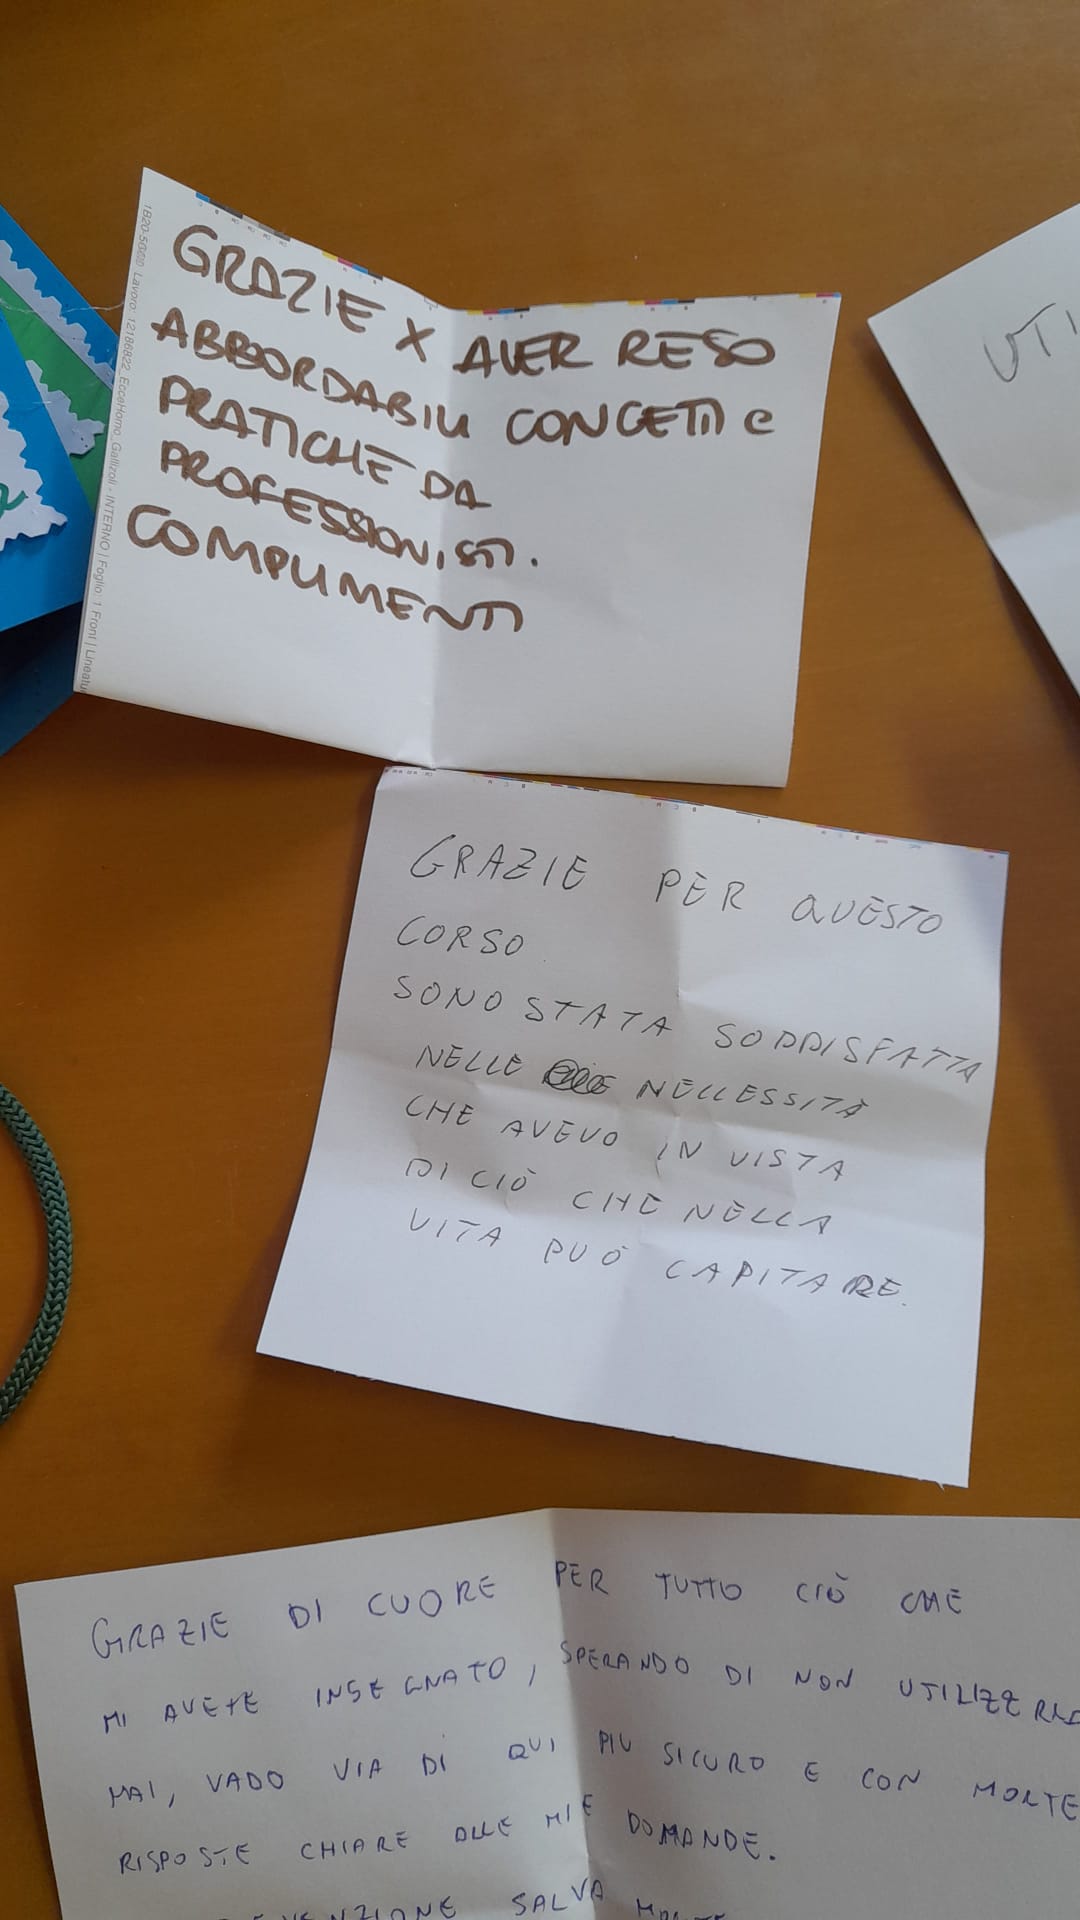 GRAZIE X AVER RESO
ABBORDABILI CONCETTI e
PRATICHE DA
PROFESSIONISTI.
COMPLIMENTI
1B20-50/00 Lavoro: 12186822_EcceHomo_Gallizoli - INTERNO | Foglio: 1 Front | Lineatu
UTI
GRAZIE PER QUESTO
CORSO.
SONO STATA SODDISFATTA
NELLE NELLESSITÀ
CHE AVEVO IN VISTA
DI CIÒ CHE NELLA
VITA PUÒ CAPITARE.
GRAZIE DI CUORE PER TUTTO CIÒ CHE
MI AVETE INSEGNATO, SPERANDO DI NON UTILIZZRLO
MAI, VADO VIA DI QUI PIU SICURO E CON MOLTE
RISPOSTE CHIARE ALLE MIE DOMANDE.
SALVA